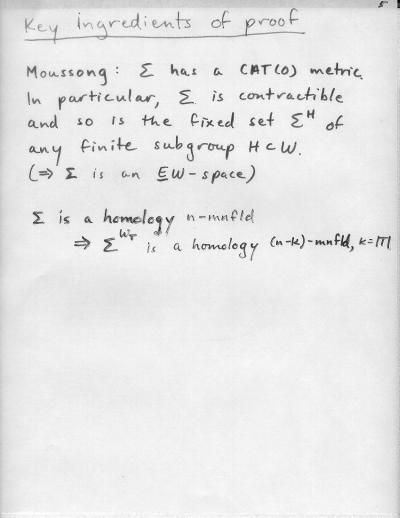 5
Key ingredients of proof
Moussong: Σ has a CAT(0) metric
In particular, Σ is contractible
and so is the fixed set Σ^H of
any finite subgroup H ⊂ W.
(⇒ Σ is an E̲W-space)
Σ is a homology n-mnfld
⇒ Σ^{W_T} is a homology (n-k)-mnfld, k=|T|